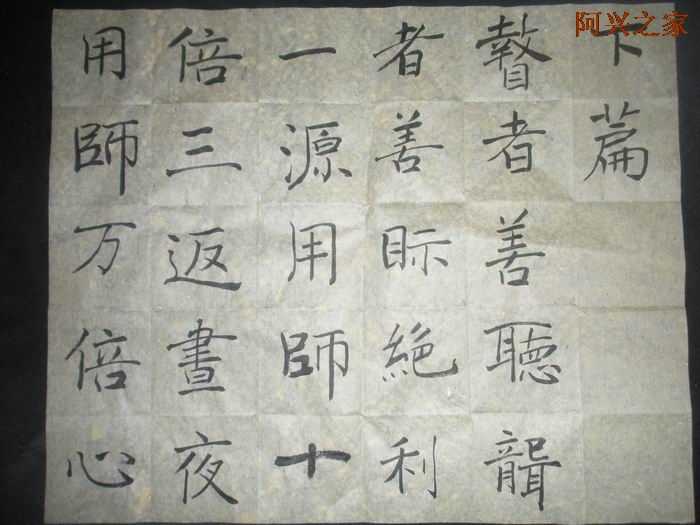 阿兴之家
下篇
瞽者善聴聾
者善眎絶利
一源用師十
倍三返晝夜
用師万倍心